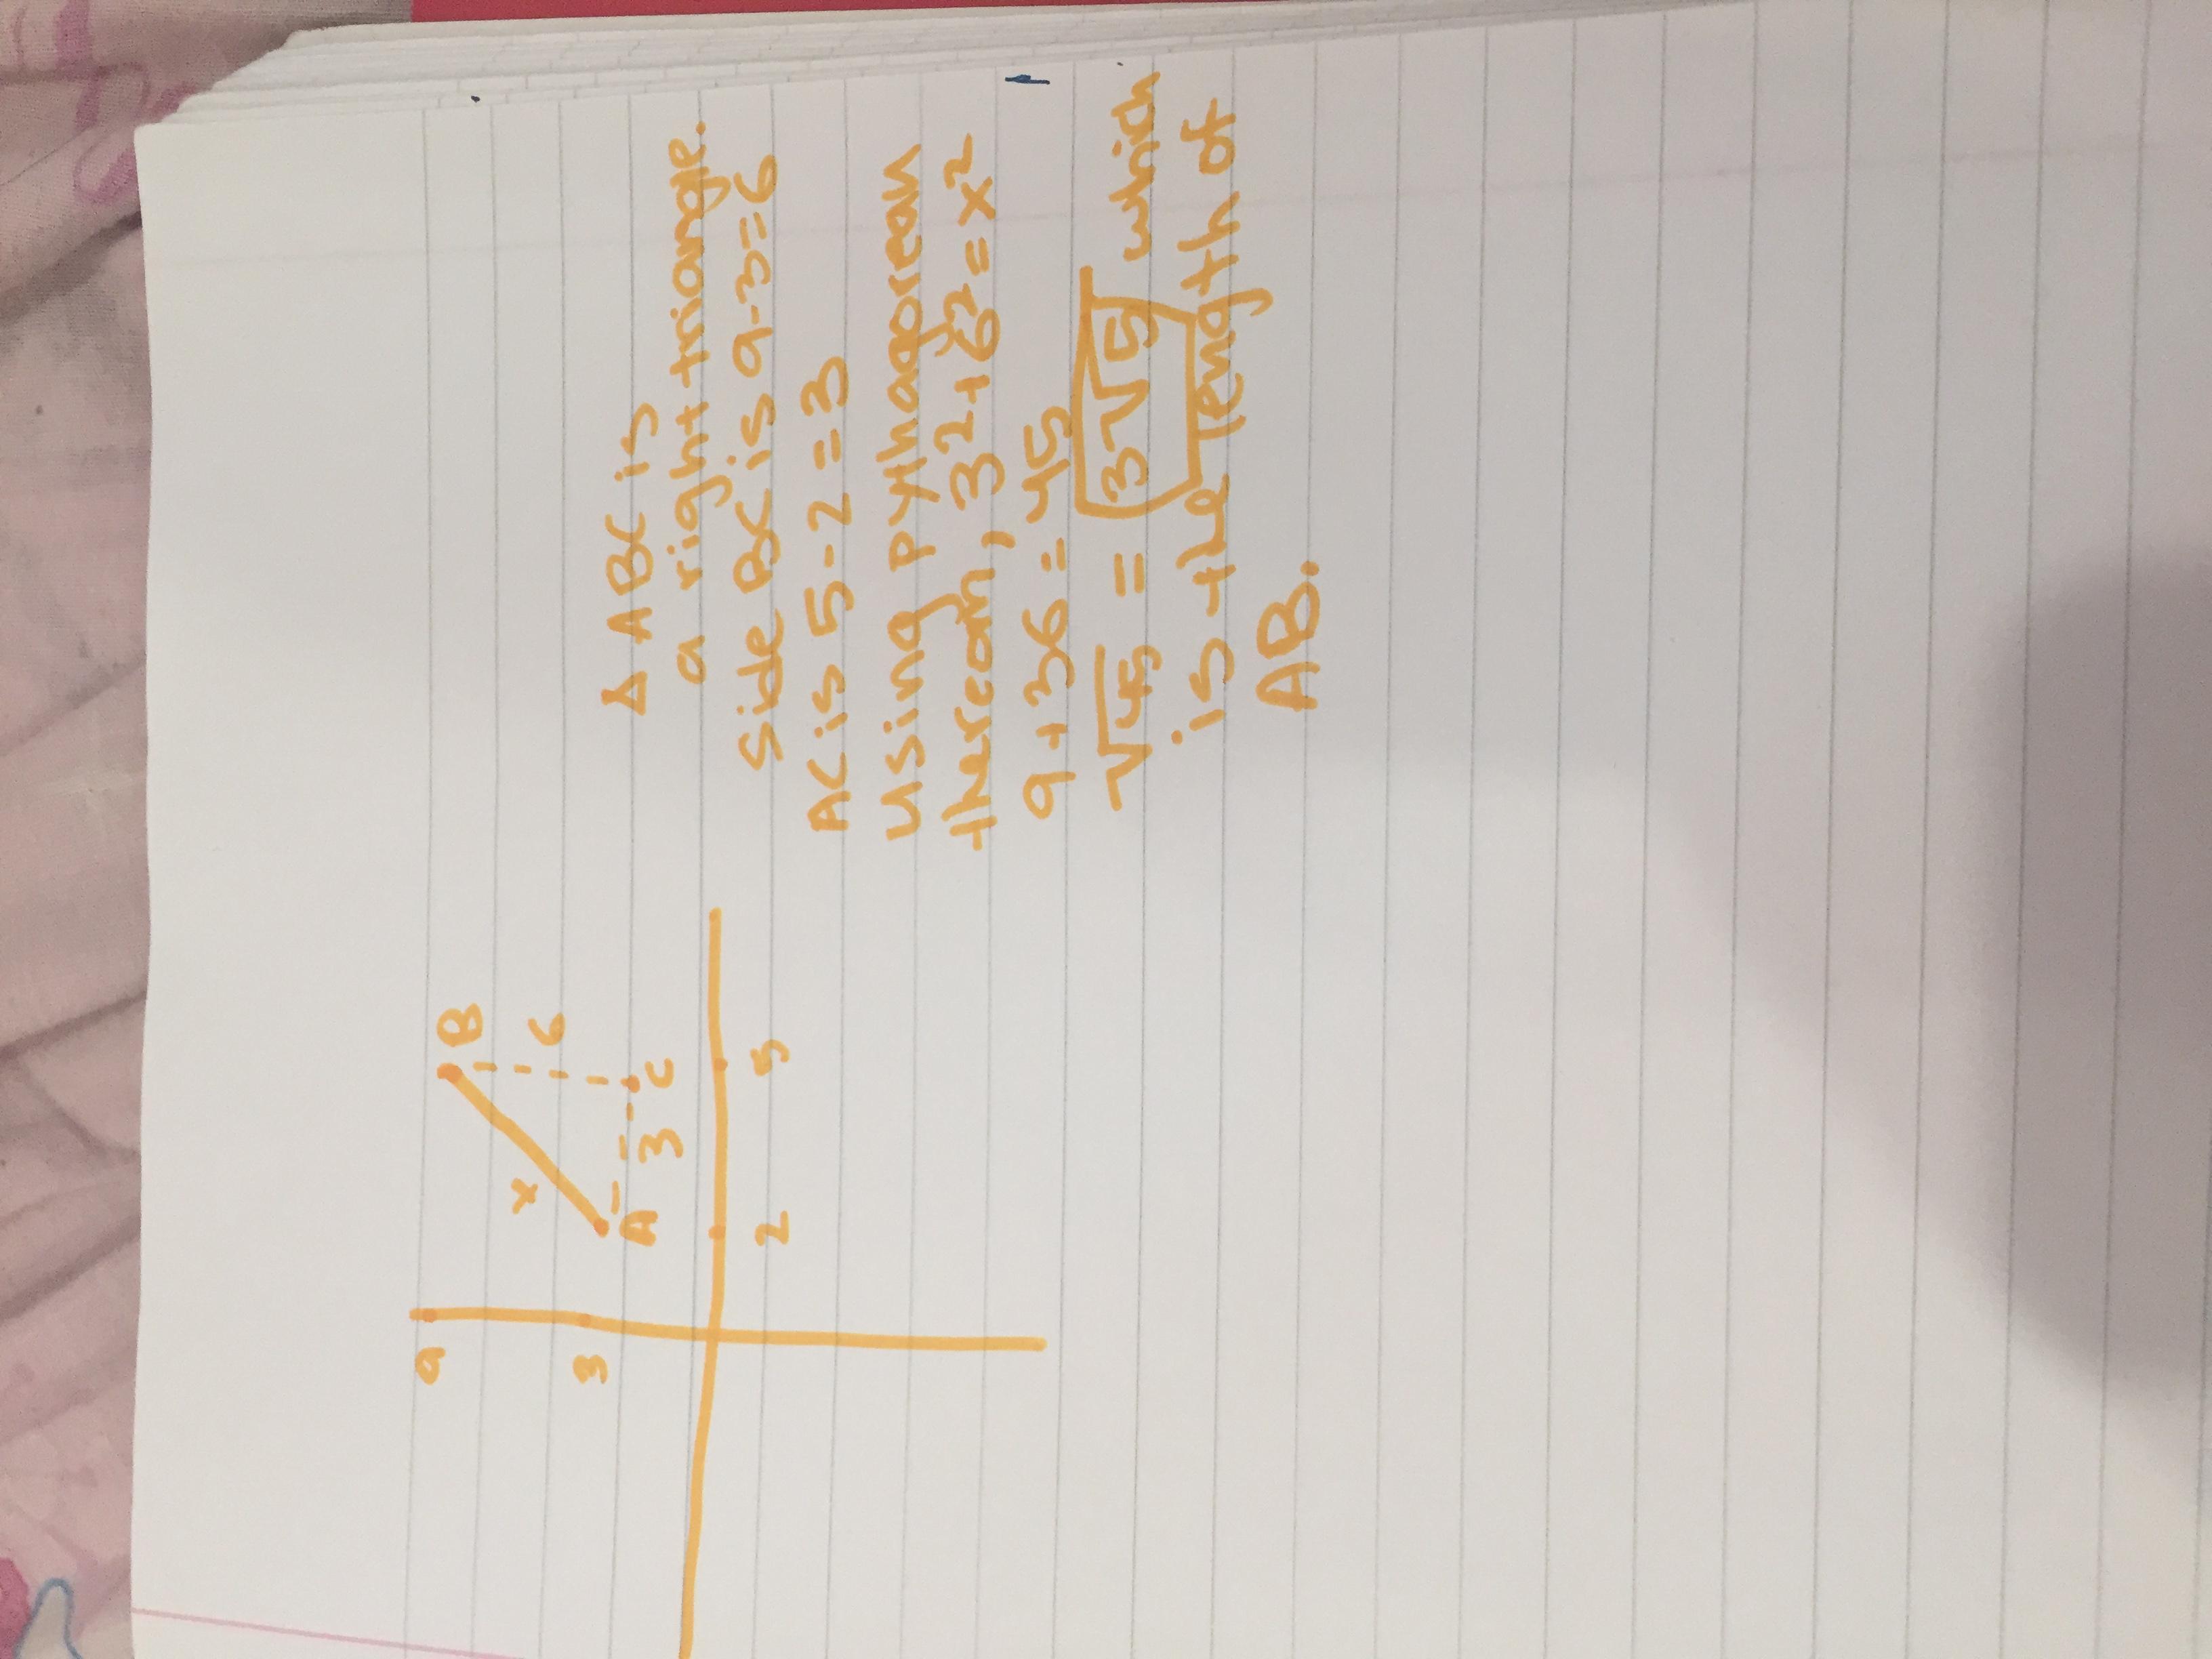 9
B
x
6
3
A
3
C
2
5
Δ ABC is
a right triangle.
Side BC is 9-3=6
AC is 5-2=3
Using pyhagorean
thereom, 3²+6²=x²
9+36=45
√45 = 3√5 which
is the length of
AB.